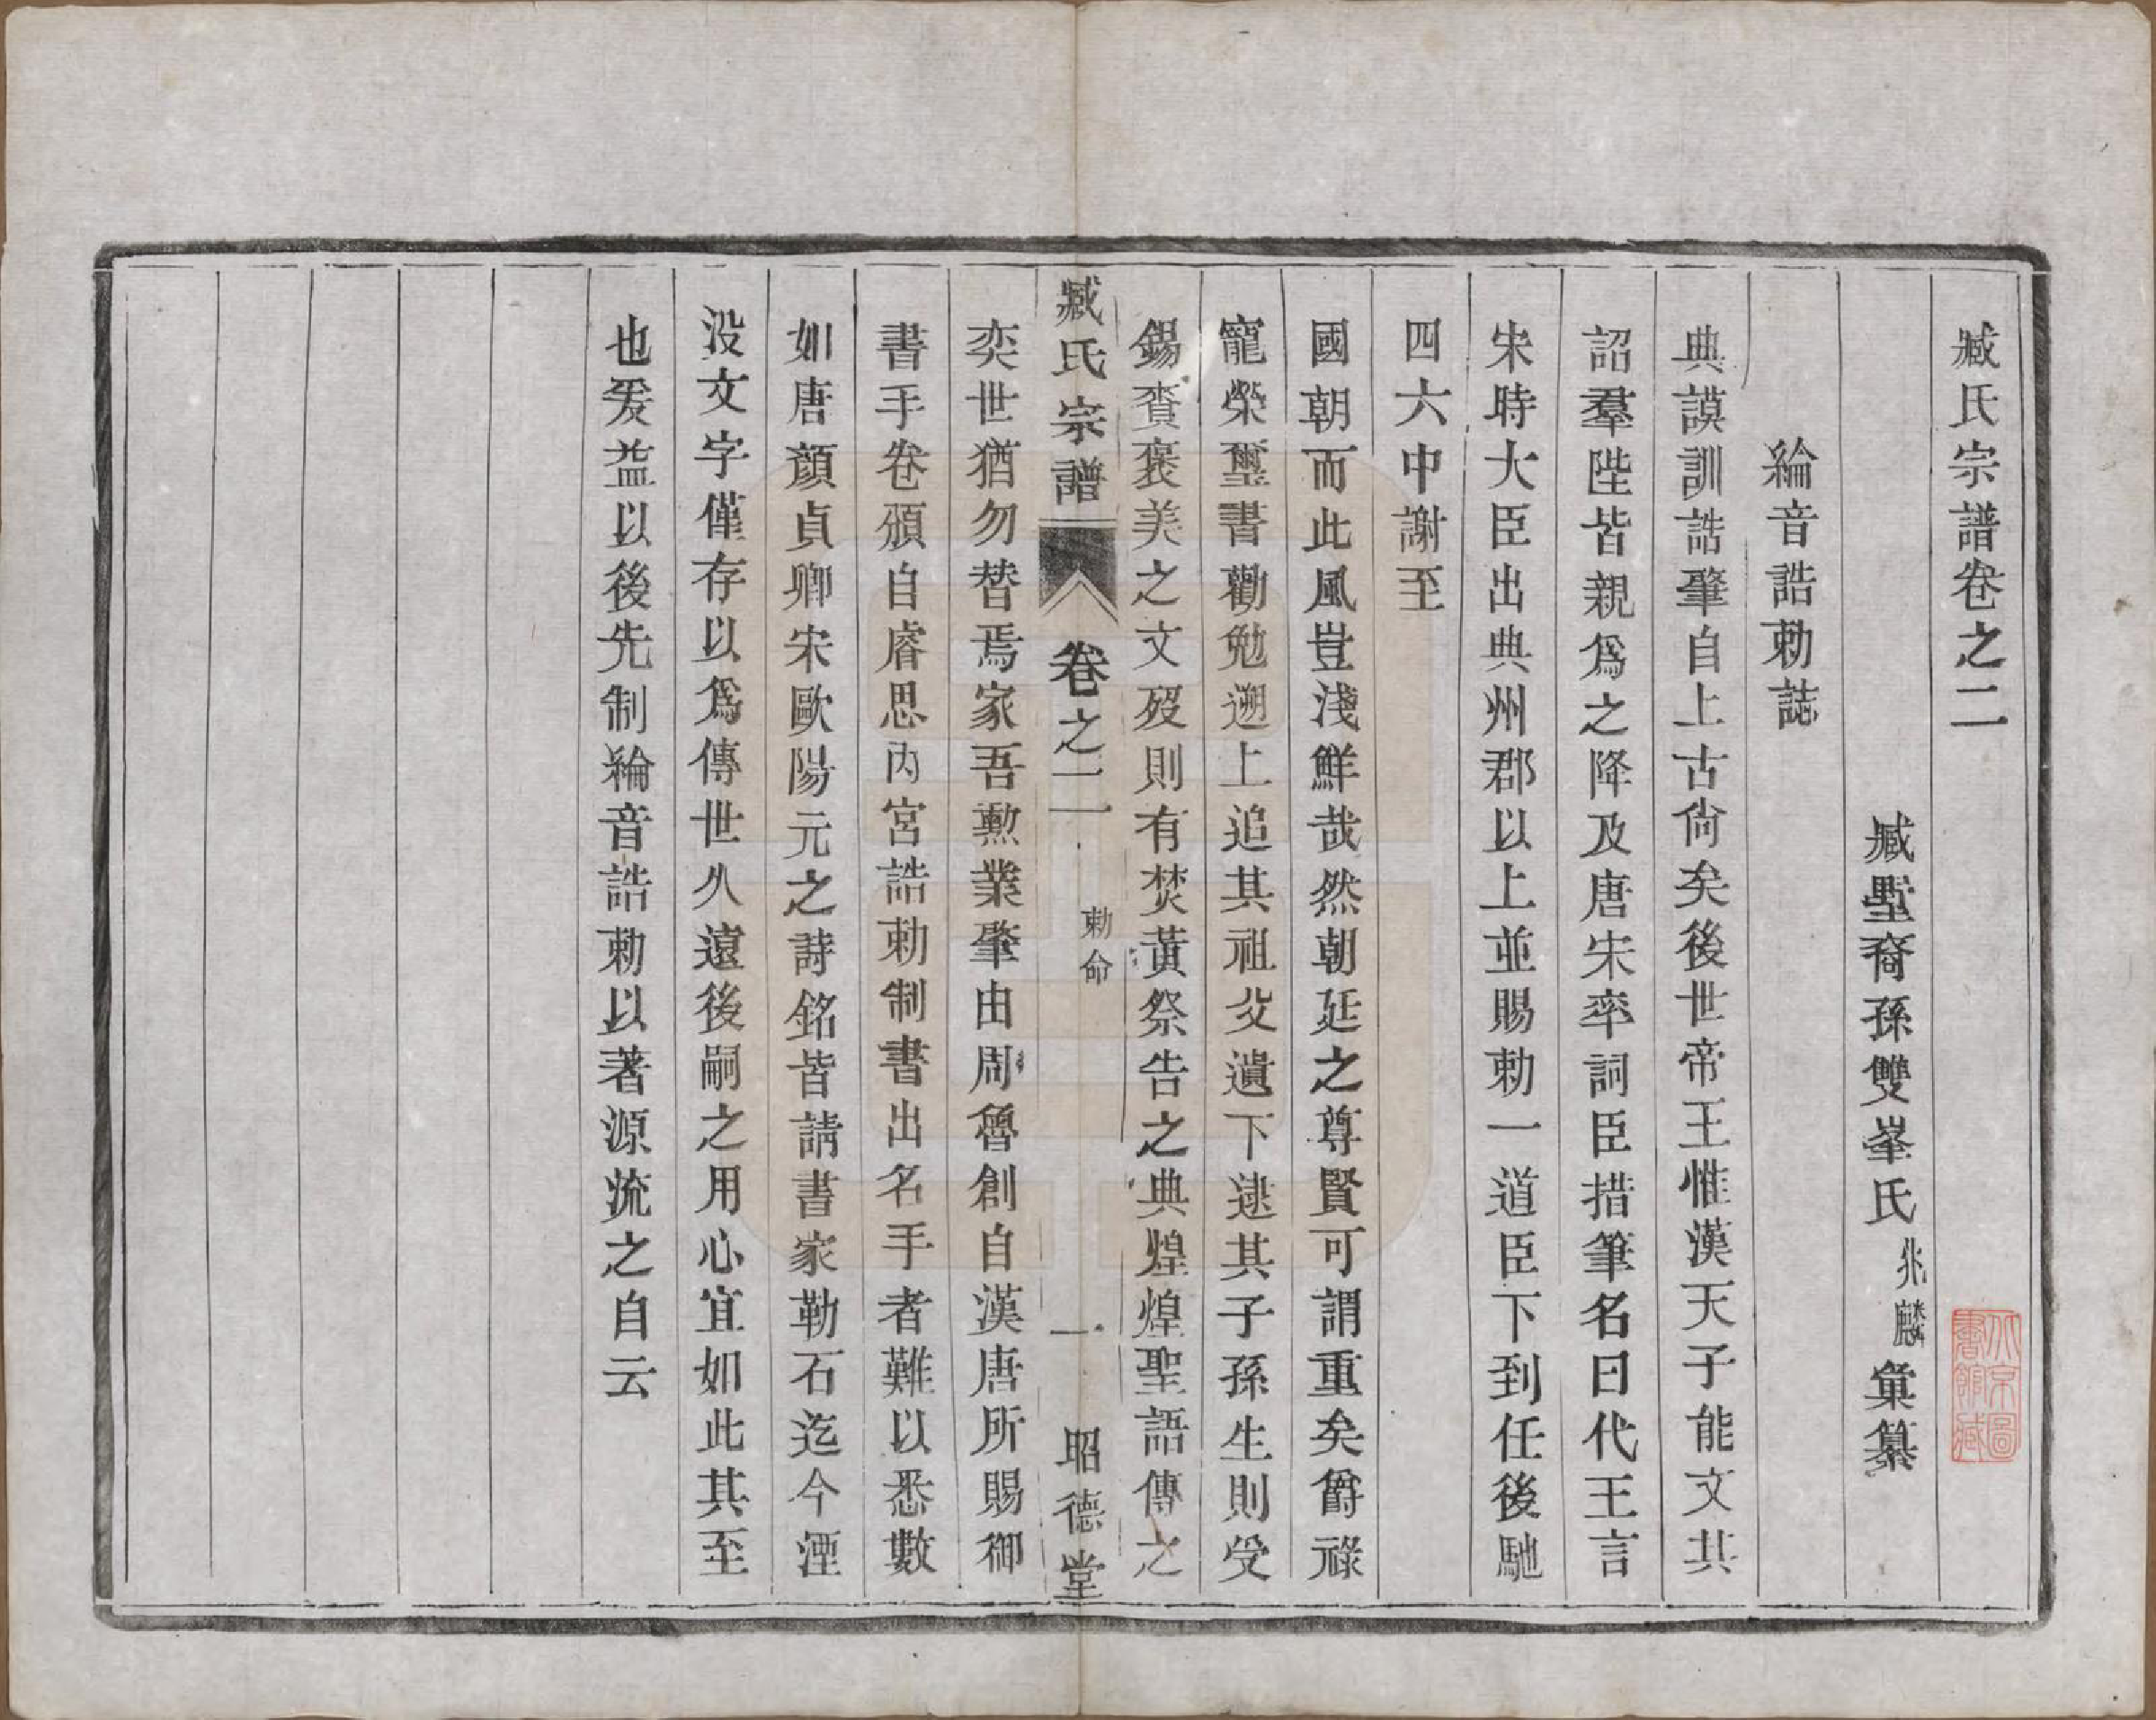 臧氏宗譜卷之二
臧墅裔孫雙峯氏兆麟彙纂
綸音誥勅誌
典謨訓誥肇自上古尙矣後世帝王惟漢天子能文其
詔羣陛皆親爲之降及唐宋率詞臣措筆名曰代王言
宋時大臣出典州郡以上並賜勅一道臣下到任後馳
四六中謝至
國朝而此風豈淺鮮哉然朝廷之尊賢可謂重矣爵祿
寵榮璽書勸勉遡上追其祖父遺下逮其子孫生則受
錫賚褒美之文歿則有焚黃祭告之典煌煌聖語傳之
臧氏宗譜 卷之二 勅命 一 昭德堂
奕世猶勿替焉家吾勲業肇由周魯創自漢唐所賜御
書手卷頒自睿思內宮誥勅制書出名手者難以悉數
如唐顏貞卿宋歐陽元之詩銘皆請書家勒石迄今湮
沒文字僅存以爲傳世久遠後嗣之用心宜如此其至
也爰益以後先制綸音誥勅以著源流之自云